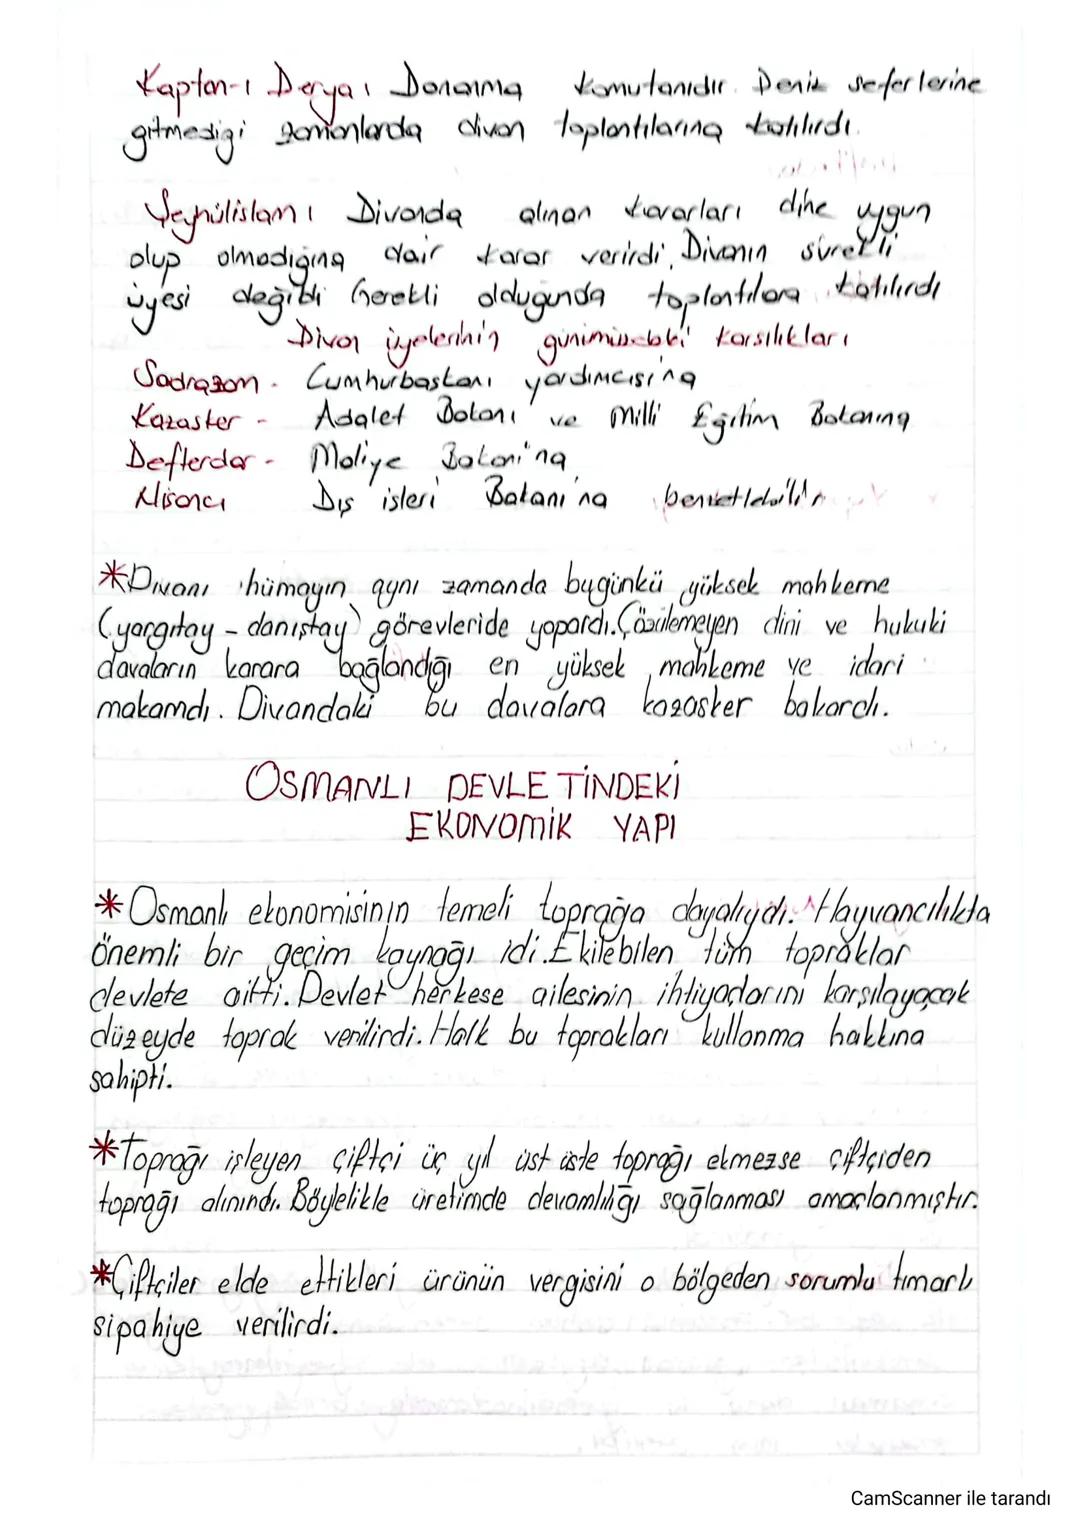 Kaptan-ı Derya: Donanma komutanıdır. Deniz seferlerine
gitmediği zamanlarda divan toplantılarına katılırdı.
Şeyhülislam: Divanda alınan kararları dine uygun
olup olmadığına dair karar verirdi. Divanın sürekli
üyesi değildi Gerekli olduğunda toplantılara katılırdı
Divan üyelerinin günümüzdeki karşılıkları
Sadrazam - Cumhurbaşkanı yardımcısına
Kazasker - Adalet Bakanı ve Milli Eğitim Bakanına
Defterdar - Maliye Bakanı'na
Nişancı Dış işleri Bakanı'na benzetilebilir
*Divanı hümayın aynı zamanda bugünkü yüksek mahkeme
(yargıtay - danıştay) görevleride yapardı. Çözülemeyen dini ve hukuki
davaların karara bağlandığı en yüksek mahkeme ve idari
makamdı. Divandaki bu davalara kazasker bakardı.
OSMANLI DEVLETİNDEKİ
EKONOMİK YAPI
*Osmanlı ekonomisinin temeli toprağa dayalıydı. Hayvancılıkta
önemli bir geçim kaynağı idi. Ekilebilen tüm topraklar
devlete aitti. Devlet herkese ailesinin ihtiyaçlarını karşılayacak
düzeyde toprak verilirdi. Halk bu toprakları kullanma hakkına
sahipti.
*Toprağı işleyen çiftçi üç yıl üst üste toprağı ekmezse çiftçiden
toprağı alınırdı. Böylelikle üretimde devamlılığı sağlanması amaçlanmıştır.
*Çiftçiler elde ettikleri ürünün vergisini o bölgeden sorumlu tımarlı
sipahiye verilirdi.
CamScanner ile tarandı